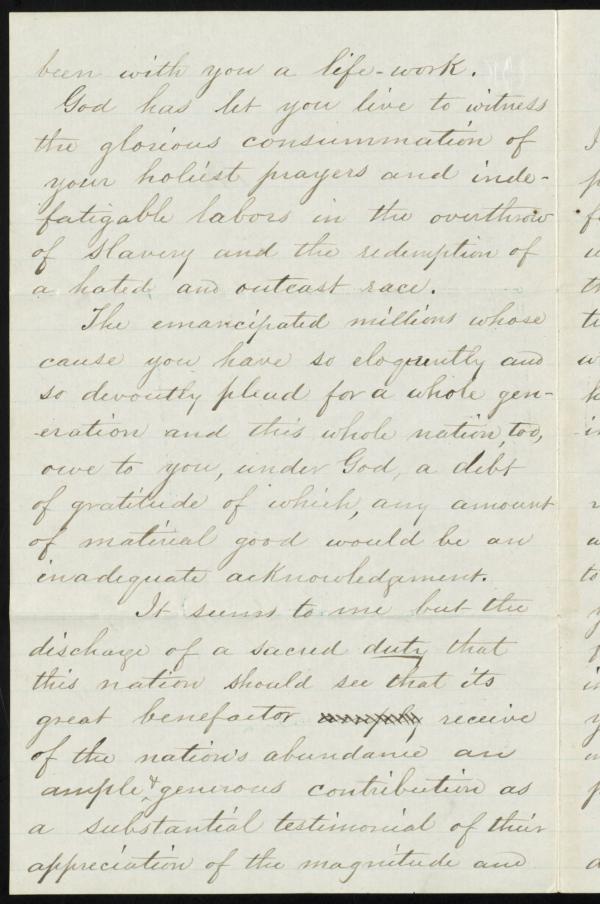 been with you a life-work.
God has let you live to witness
the glorious consummation of
your holiest prayers and inde-
fatigable labors in the overthrow
of slavery and the redemption of
a hated and outcast race.
The emancipated millions whose
cause you have so eloquently and
so devoutly plead for a whole gen-
eration and this whole nation, too,
owe to you, under God, a debt
of gratitude of which, any amount
of material good would be an
inadequate acknowledgement.
It seems to me but the
discharge of a sacred duty that
this nation should see that its
great benefactor receive
of the nation's abundance an
ample & generous contribution as
a substantial testimonial of their
appreciation of the magnitude and